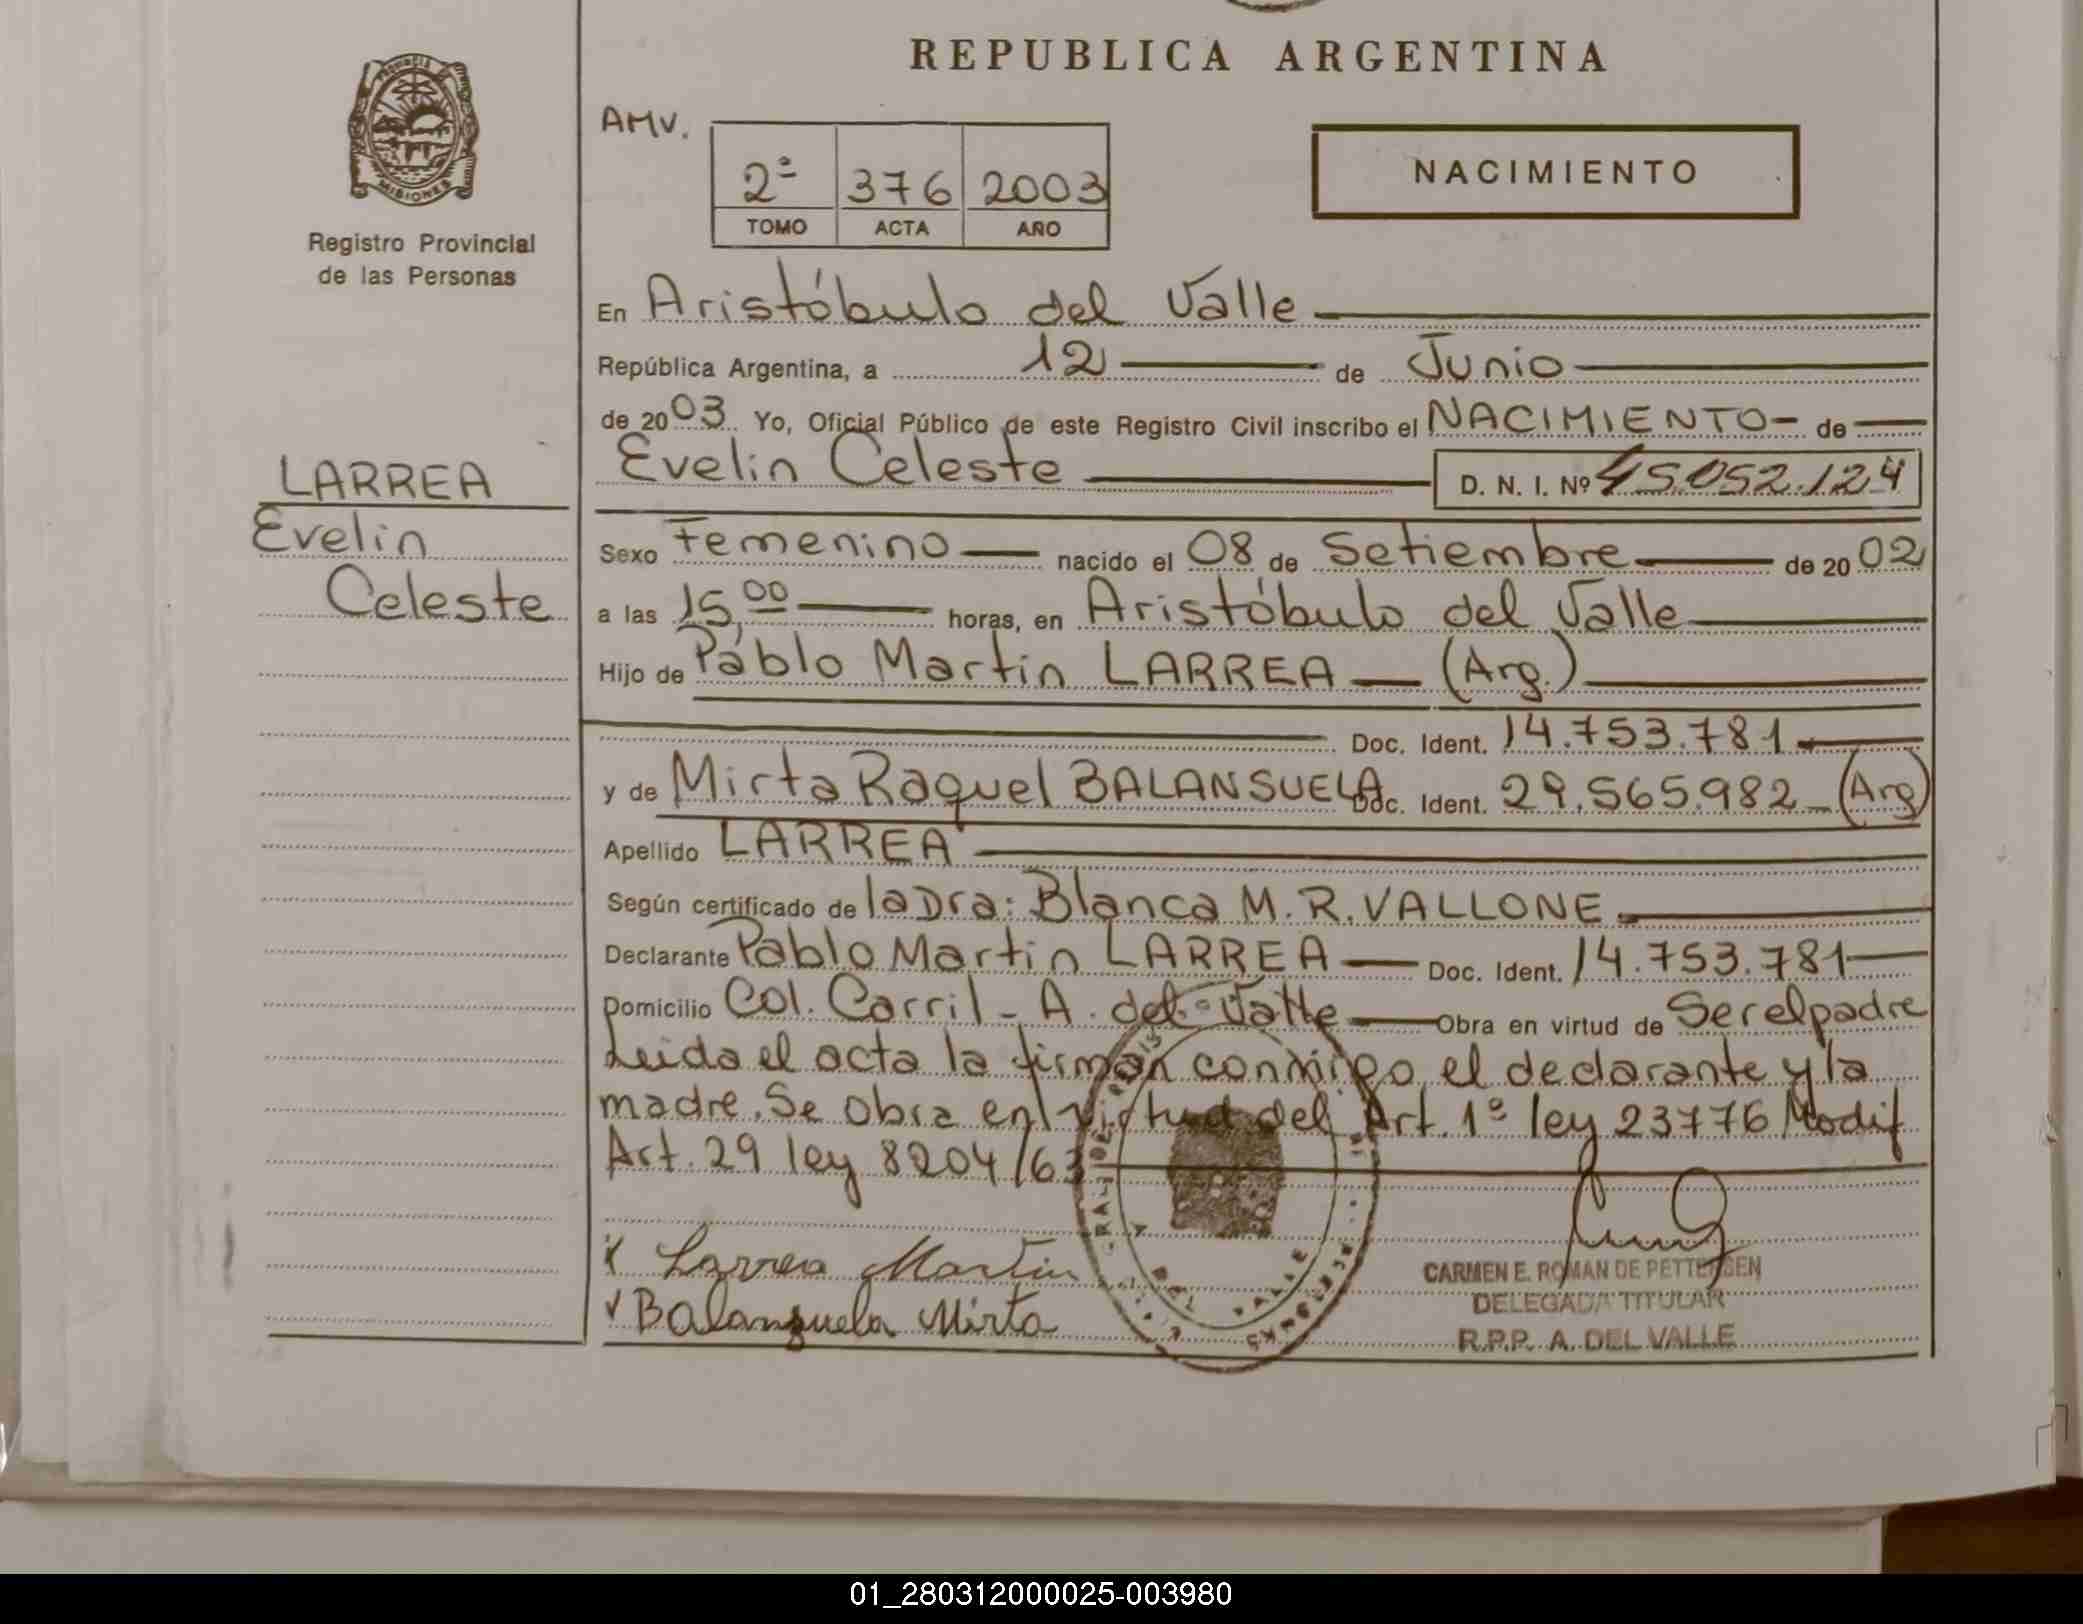 REPUBLICA ARGENTINA
PROVINCIA DE
MISIONES
Registro Provincial
de las Personas
AMV.
2ª 376 2003
TOMO ACTA AÑO
NACIMIENTO
En Aristóbulo del Valle
República Argentina, a 12 de Junio
de 2003 Yo, Oficial Público de este Registro Civil inscribo el NACIMIENTO de
Evelin Celeste D. N. I. Nº 45.052.124
LARREA
Evelin
Celeste
Sexo Femenino nacido el 08 de Setiembre de 2002
a las 15,00 horas, en Aristóbulo del Valle
Hijo de Pablo Martin LARREA (Arg.)
Doc. Ident. 14.753.781
y de Mirta Raquel BALANSUELA Doc. Ident. 29.565.982 (Arg)
Apellido LARREA
Según certificado de la Dra: Blanca M. R. VALLONE
Declarante Pablo Martin LARREA Doc. Ident. 14.753.781
Domicilio Col. Carril - A. del Valle Obra en virtud de Ser el padre
Leida el acta la firman conmigo el declarante y la
madre. Se obra en virtud del Art. 1º ley 23776 Modif
Art. 29 ley 8204/63
Larrea Martin
Balanzuela Mirta
DEL VALLE
CARMEN E. ROMAN DE PETTERSEN
DELEGADA TITULAR
R.P.P. A. DEL VALLE
01_280312000025-003980